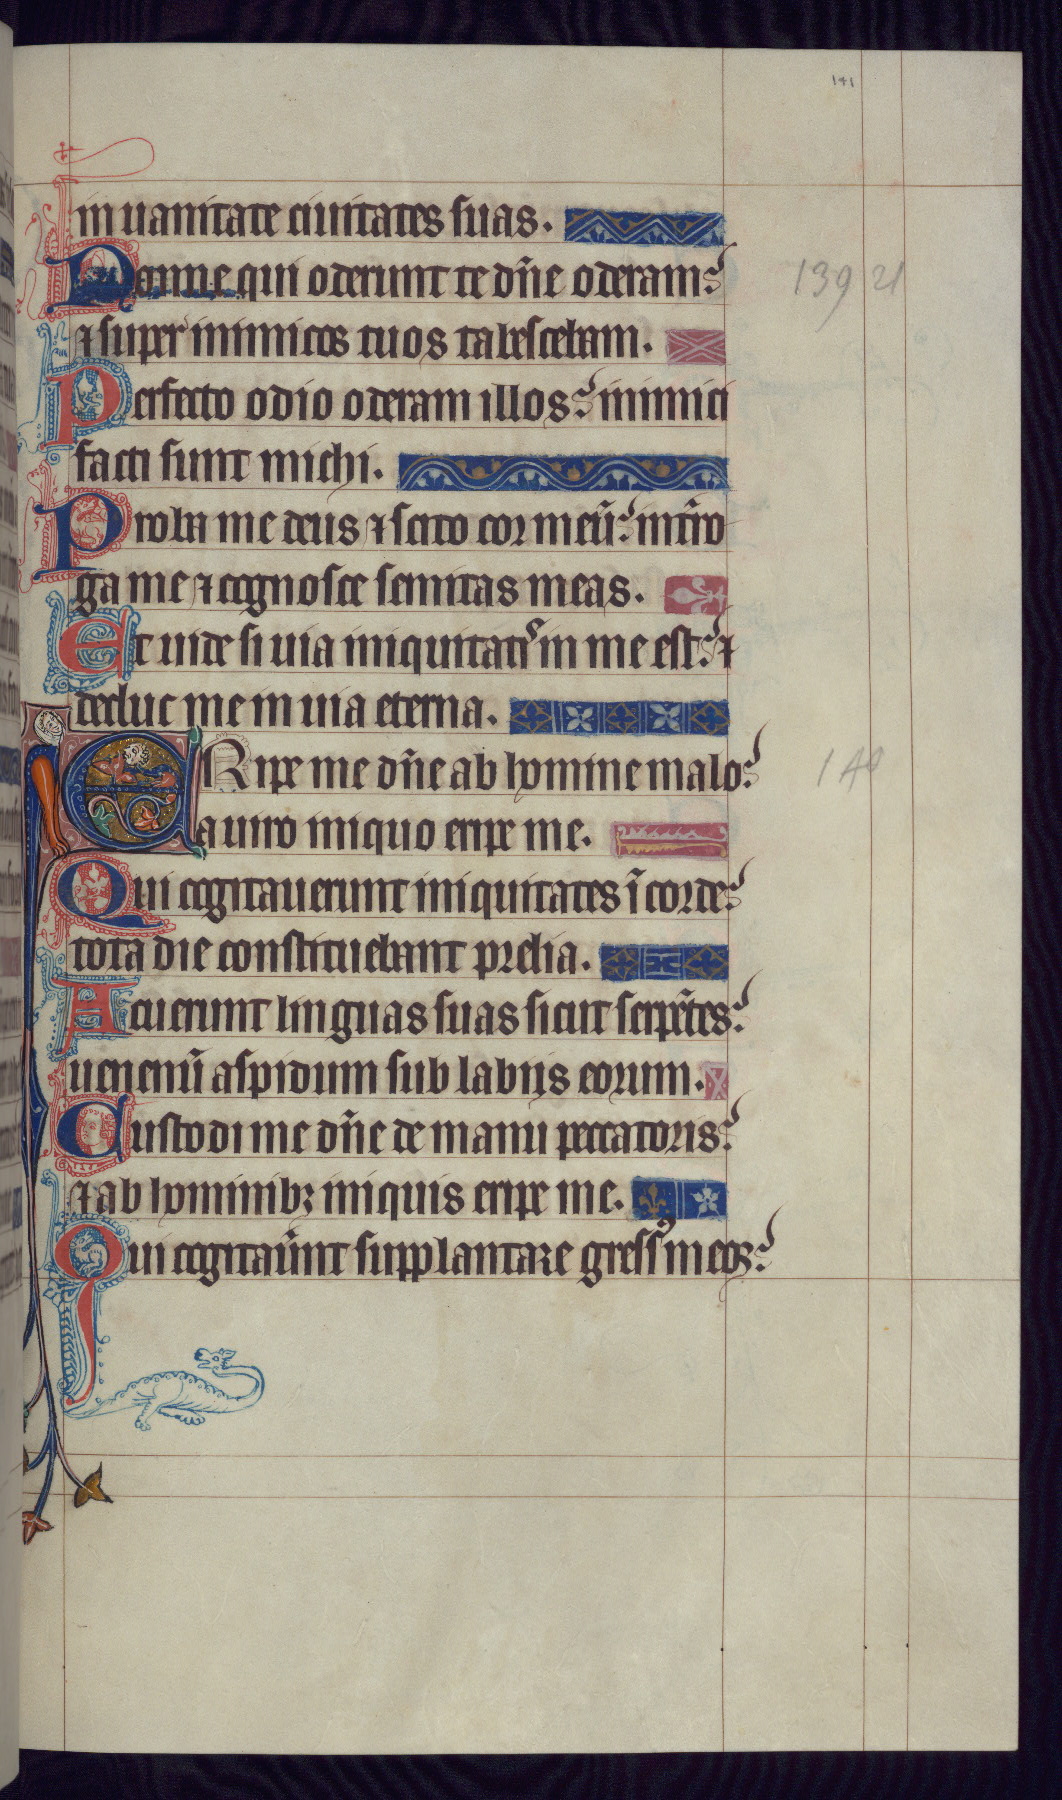 141
in uanitate ciuitates suas.
Nonne qui oderunt te dñe oderam 139 21
⁊ super inimicos tuos tabescebam.
Perfecto odio oderam illos inimici
facti sunt michi.
Proba me deus ⁊ scito cor meũ intro
ga me ⁊ cognosce semitas meas.
Et uide si uia iniquitatis in me est ⁊
deduc me in uia eterna.
ERipe me dñe ab homine malo 140
a uiro iniquo eripe me.
Qui cogitauerunt iniquitates ĩ corde
tota die constituebant prelia.
Acuerunt linguas suas sicut serpẽtes
uenenũ aspidum sub labijs eorum.
Custodi me dñe de manu peccatoris
⁊ ab hominibꝫ iniquis eripe me.
Qui cogitaũnt supplantare gressꝰ meoꝝ